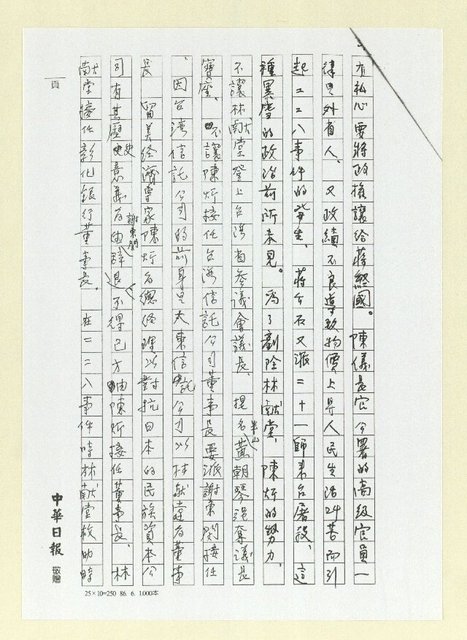 有私心要將政權讓給蔣經國。陳儀長官公署的高級官員一
律是外省人、又政績不良導致物價上昇人民生活24苦而引
起二二八事件的發生、蔣介石又派二十一師來台屠殺、這
種黑暗的政治前所未見。為了剷除林獻堂、陳炘的勢力、
不讓林獻堂登上台灣省參議會議長、提名半山黃朝琴強奪議長
寶座。不讓陳炘接任台灣信託公司董事長要派謝東閔接任
、因台灣信託公司的前身是大東信託公司以林獻堂為董事
長 留美經濟專家陳炘為總經理以對抗日本的民族資本公
司有其歷史意義為由謝東閔辭退不得已方由陳炘接任董事長、林
獻堂接任彰化銀行董事長。在二二八事件時林獻堂救助時
頁
中華日報 敬贈
25×10=250 86. 6. 1000本